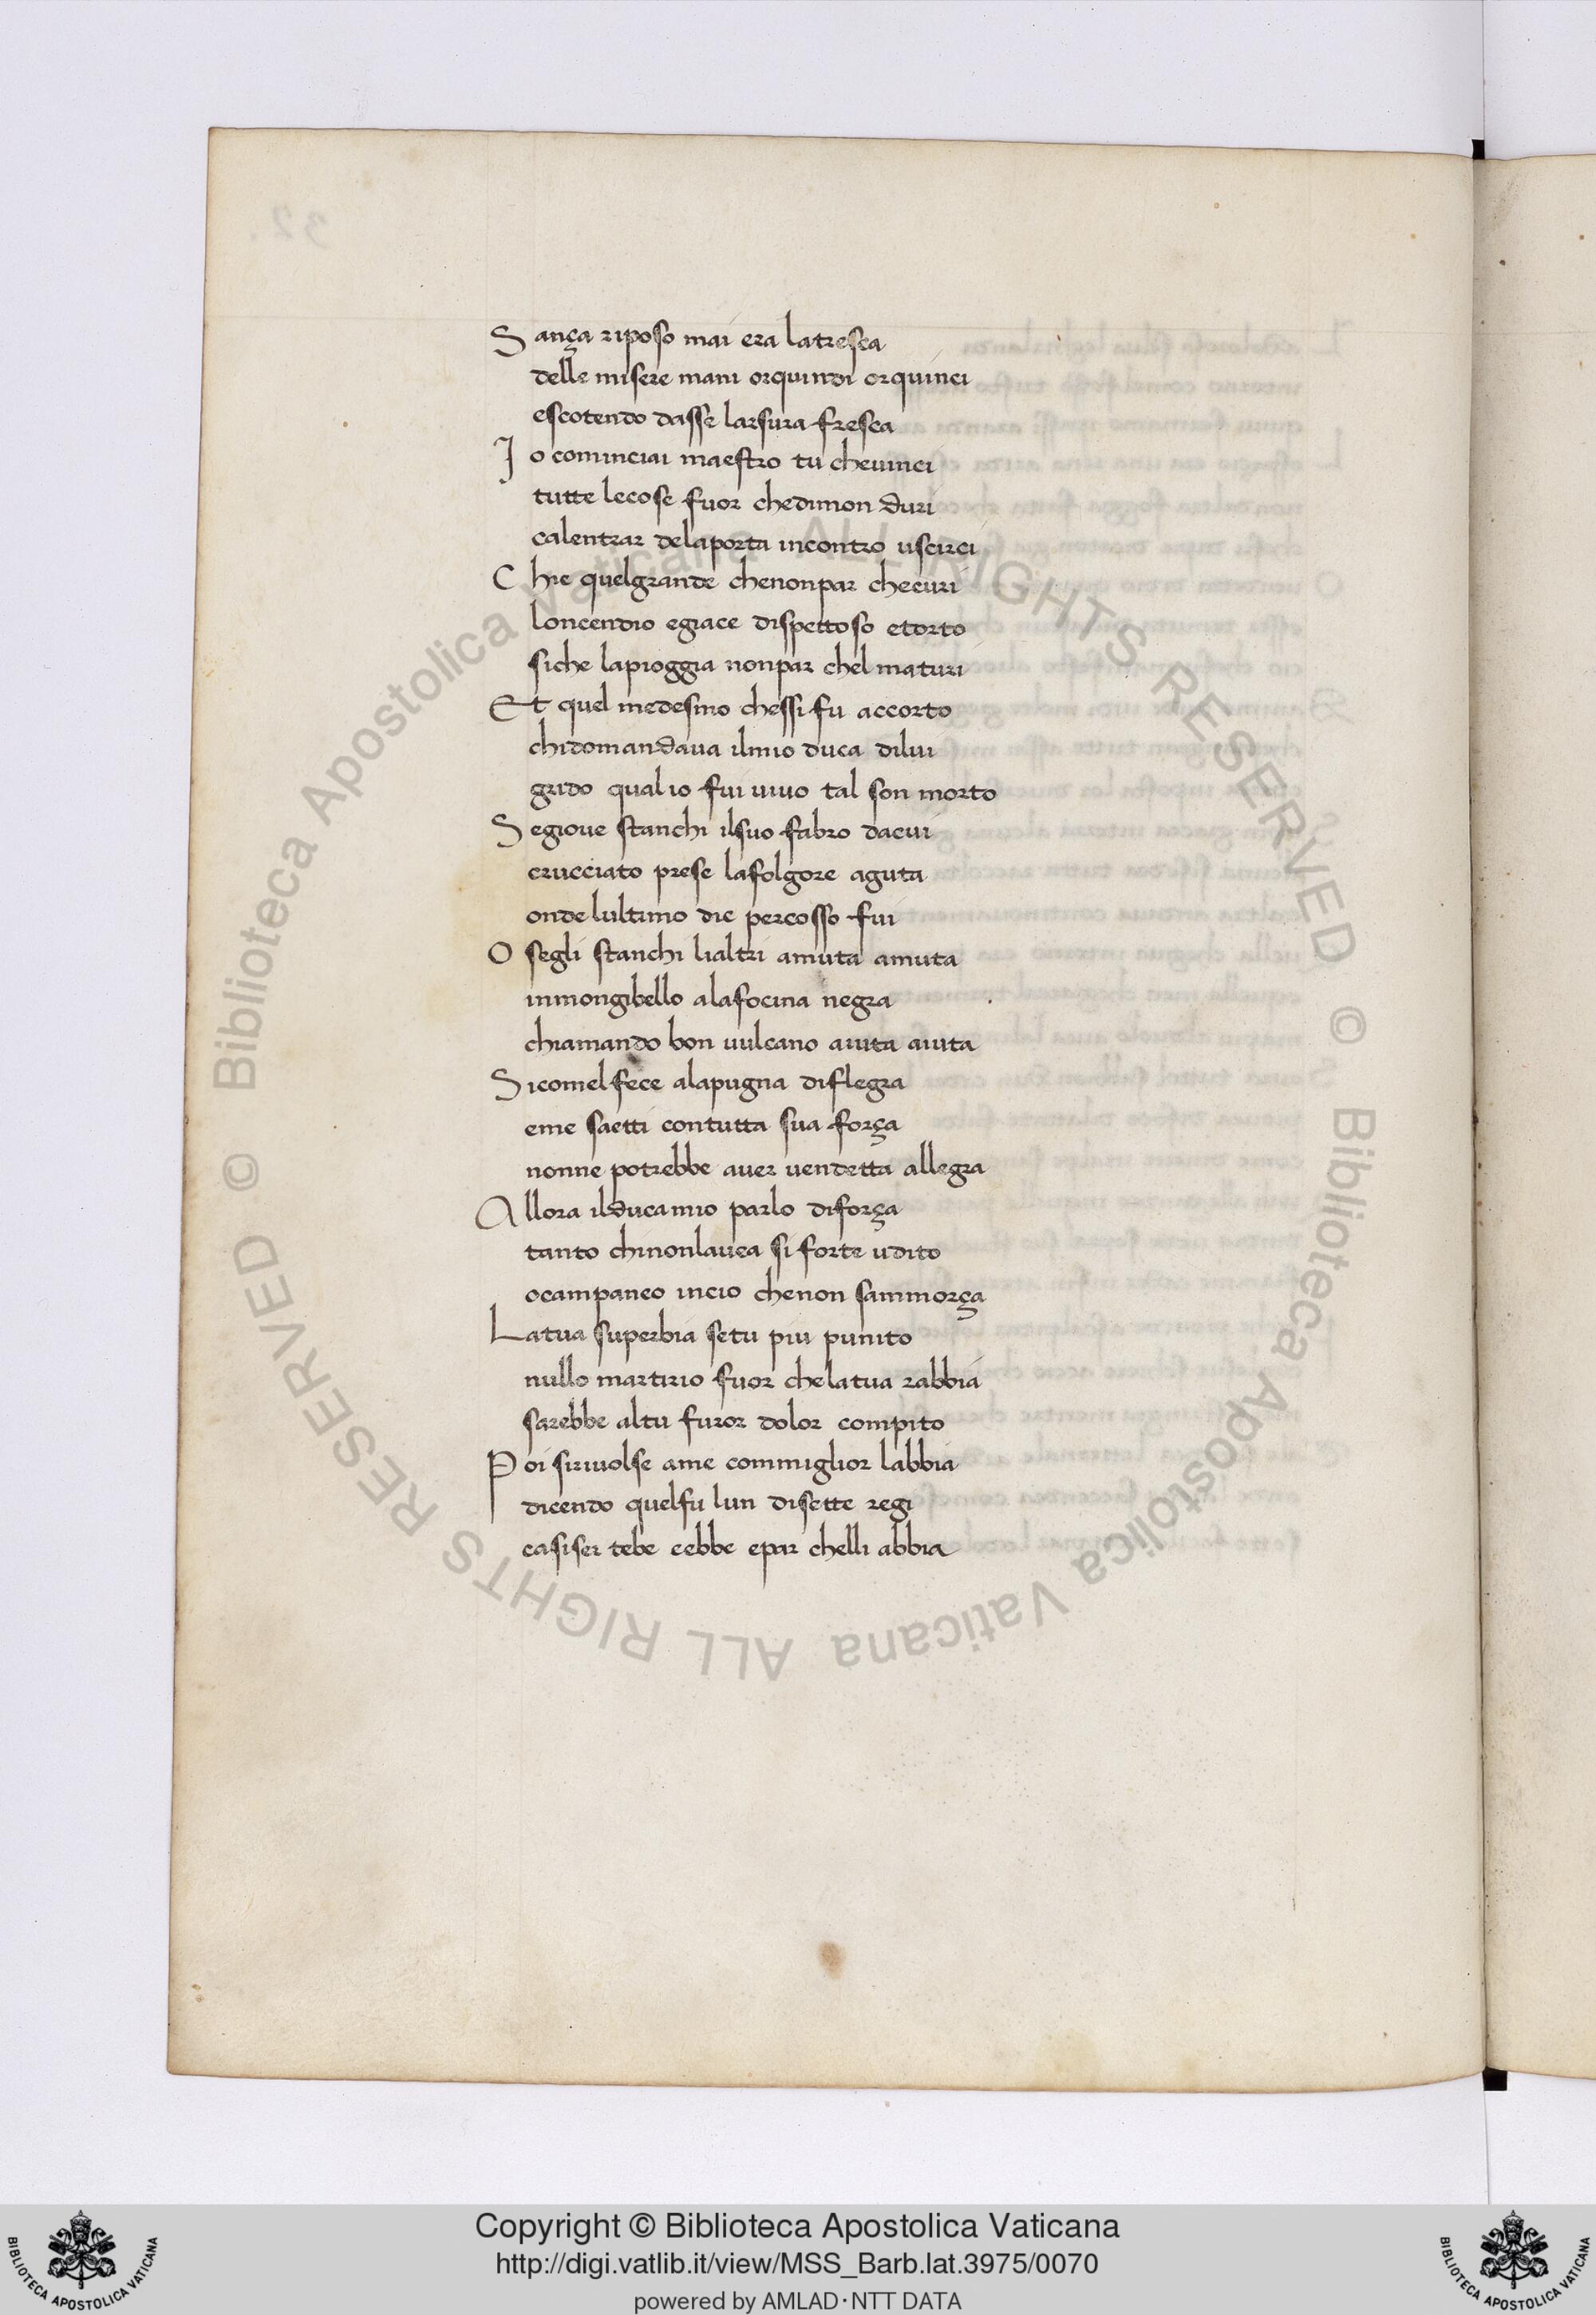 Sança riposo mai era latresca
delle misere mani orquindi orquinci
escotendo dasse larsura fresca
Io cominciai maestro tu cheuinci
tutte lecose fuor chedimon duri
calentrar delaporta incontro uscirci
Chie quelgrande chenonpar checuri
loncendio egiace dispettoso etorto
siche lapioggia nonpar chel maturi
Et quel medesmo chessi fu accorto
chidomandaua ilmio duca dilui
grido qual io fui uiuo tal son morto
Segioue stanchi ilsuo fabro dacui
crucciato prese lafolgore aguta
onde lultimo die percosso fui
O segli stanchi lialtri amuta amuta
inmongibello alafocina negra
chiamando bon uulcano aiuta aiuta
Sicomel fece alapugna diflegra
eme saetti contutta sua força
nonne potrebbe auer uendetta allegra
Allora ilducamio parlo diforça
tanto chinonlauea si forte udito
ocampaneo incio chenon sammorça
Latua superbia setu piu punito
nullo martirio fuor chelatua rabbia
sarebbe altu furor dolor compito
Poi siriuolse ame commiglior labbia
dicendo quelfu lun disette regi
casiser tebe eebbe epar chelli abbia
32.
© Biblioteca Apostolica Vaticana ALL RIGHTS RESERVED © Biblioteca Apostolica Vaticana ALL RIGHTS RESERVED
Copyright © Biblioteca Apostolica Vaticana
http://digi.vatlib.it/view/MSS_Barb.lat.3975/0070
powered by AMLAD·NTT DATA
BIBLIOTECA APOSTOLICA VATICANA
BIBLIOTECA APOSTOLICA VATICANA